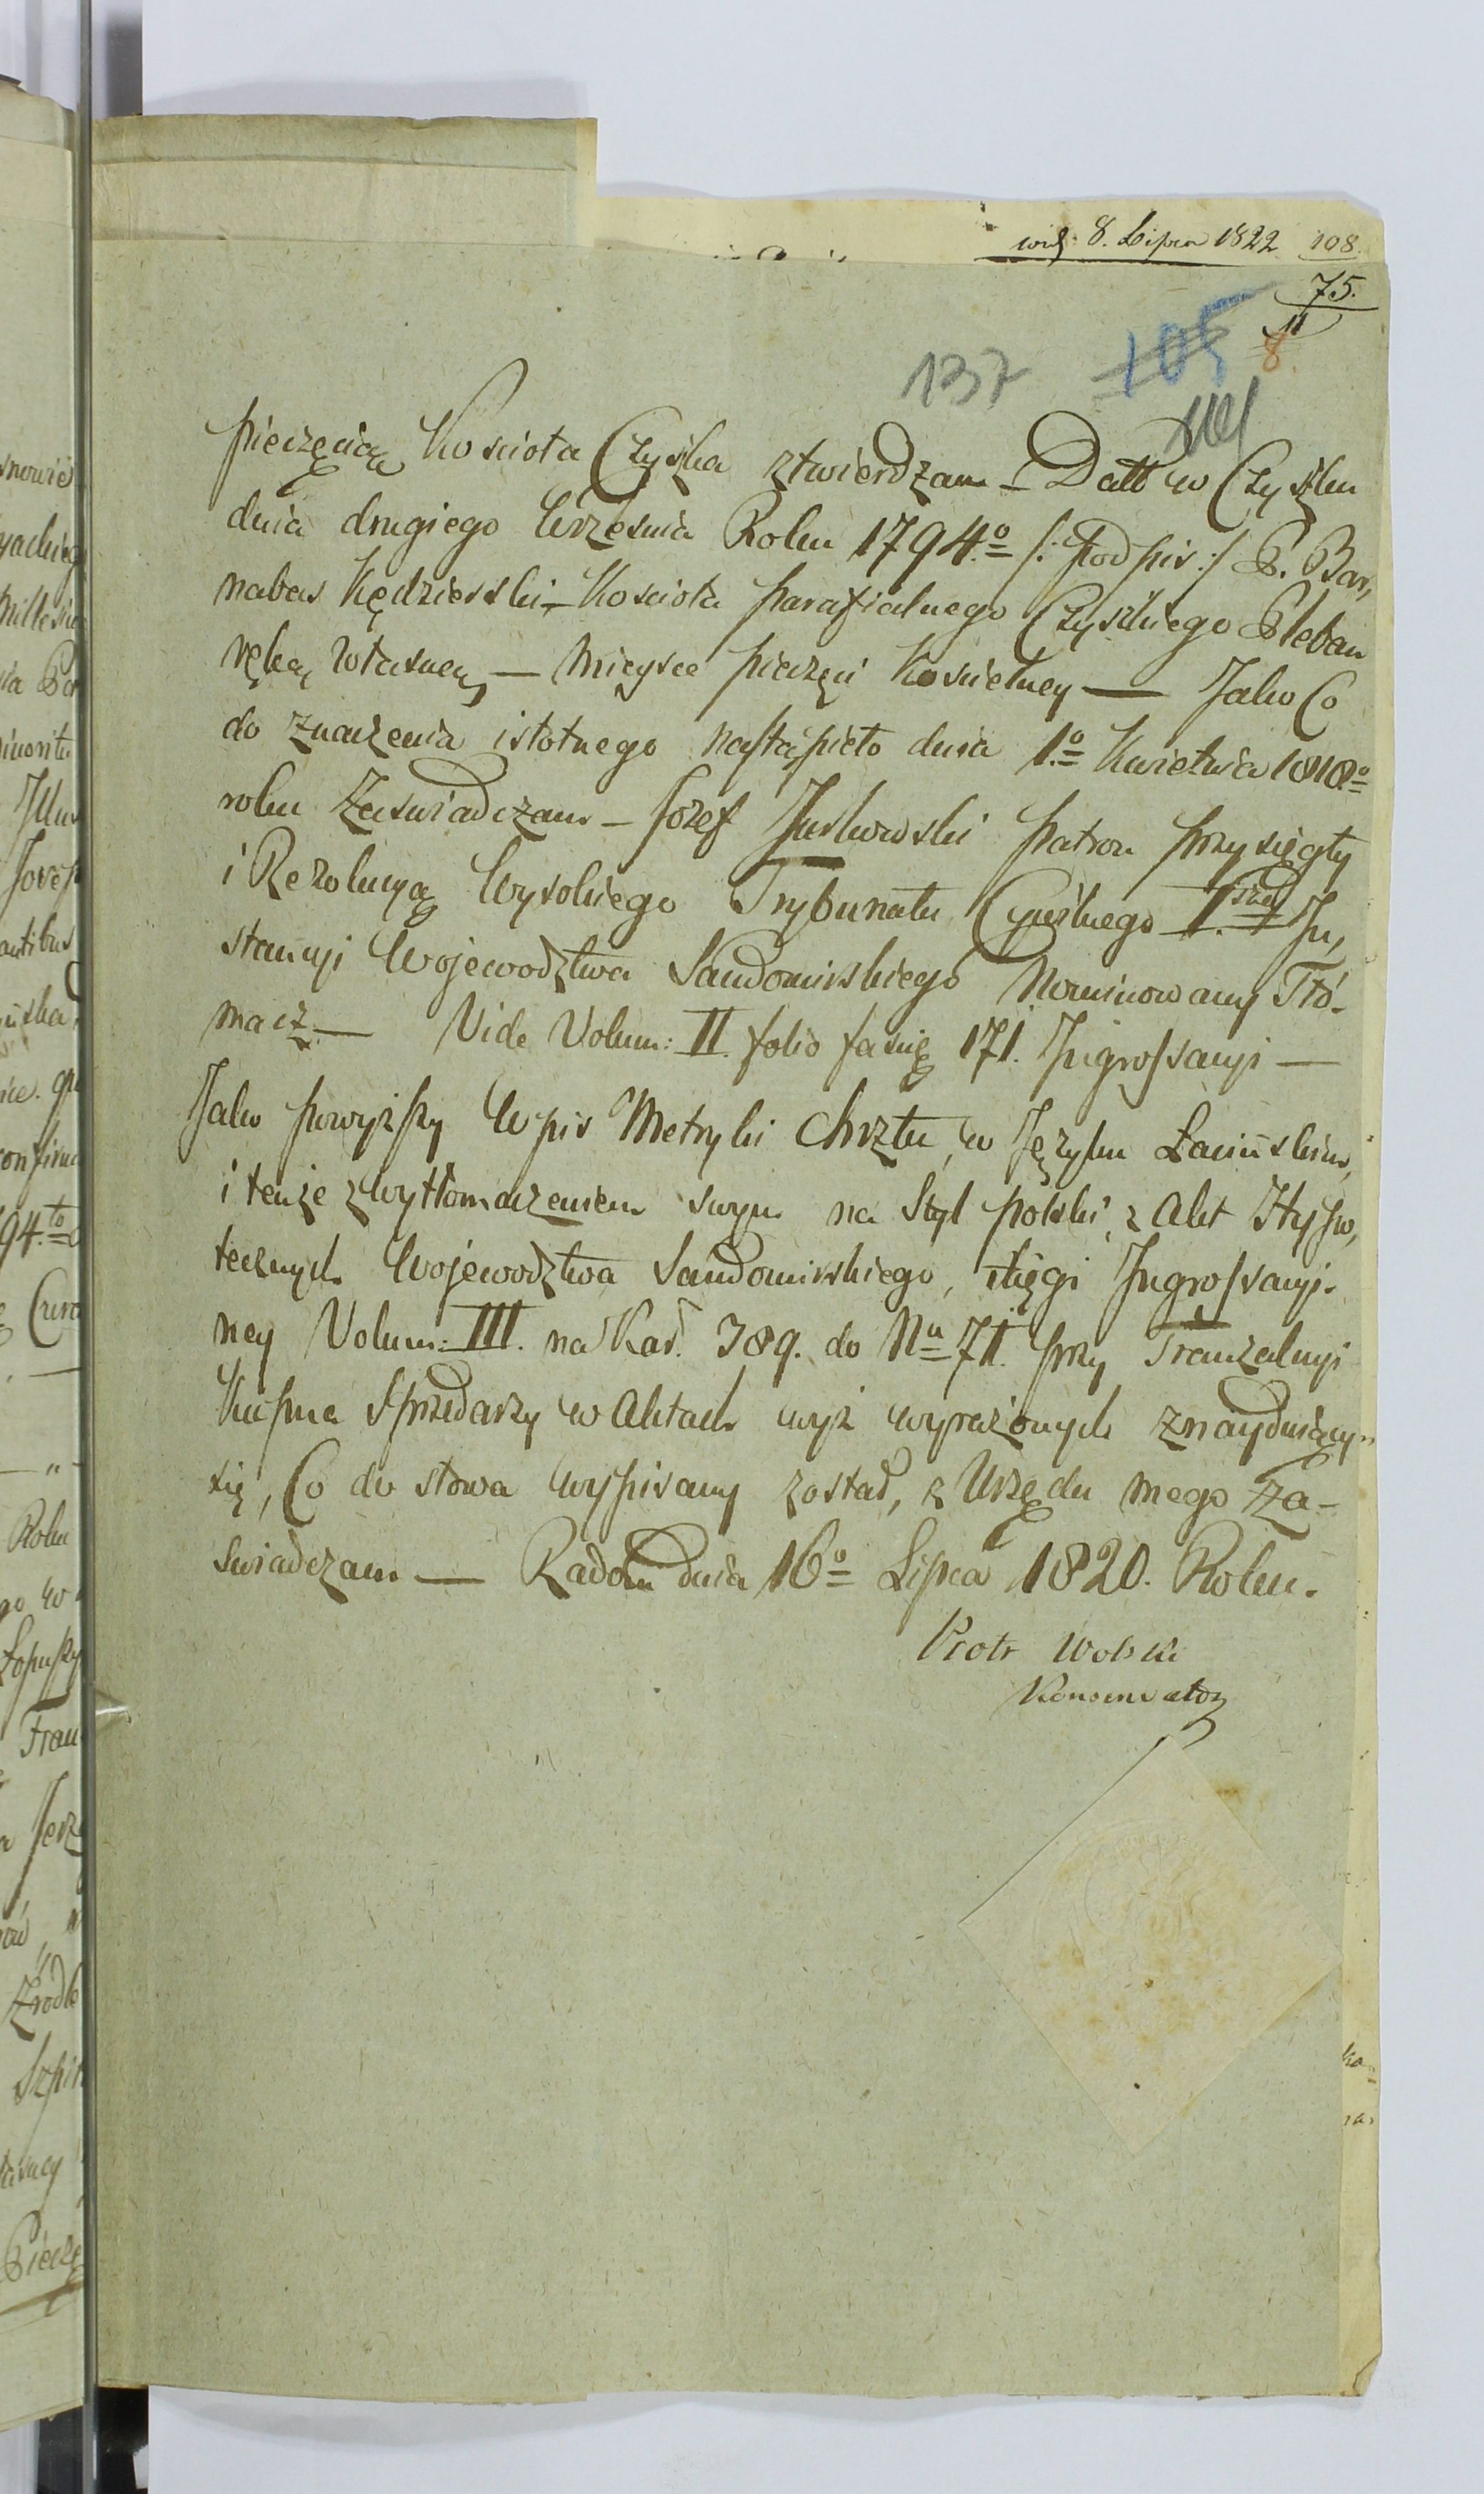 8. Lipca 1822 108.
75.
11
8.
137 105
pieczęcią Koscioła Czyska ztwierdzam – Datt w Czysku
dnia drugiego Wrzesnia Roku 1794.o /: podpis :/ P. Bar,
nabas Kędzierski – Koscioła parafialnego Czyskiego Pleban
ręką własną — Mieysce pieczęci Koscielney — Jako Co
do znaczenia istotnego nastąpieło dnia 1.o Kwietnia 1818o
roku Zaswiadczam – Jozef Jurkowski patron przysięgły
i Rezolucyą Wysokiego Trybunału Cywilnego I.szey In,
stancyi Wojewodztwa Sandomirskiego Nominowany Tłó-
macz — Vide Volum: II. folio 171. Ingrossacyi —
Jako powyższy Wpis Metryki Chrztu, w Języku Łacińskim,
i tenże z wytłomaczeniem swym na Styl polski, z Akt Hypo,
tecznych Wojewodztwa Sandomirskiego, xięgi Ingrossacyi-
ney Volum: III. na Kar. 389. do Nu 71. przy Tranzakcyi
Kupna Sprzedarzy w Aktach wyż wyrażonych znayduiący
się, Co do słowa wypisany został, z Urzędu mego Za-
swiadczam — Radom dnia 16o Lipca 1820. Roku.
Piotr Wolski
Konserwator